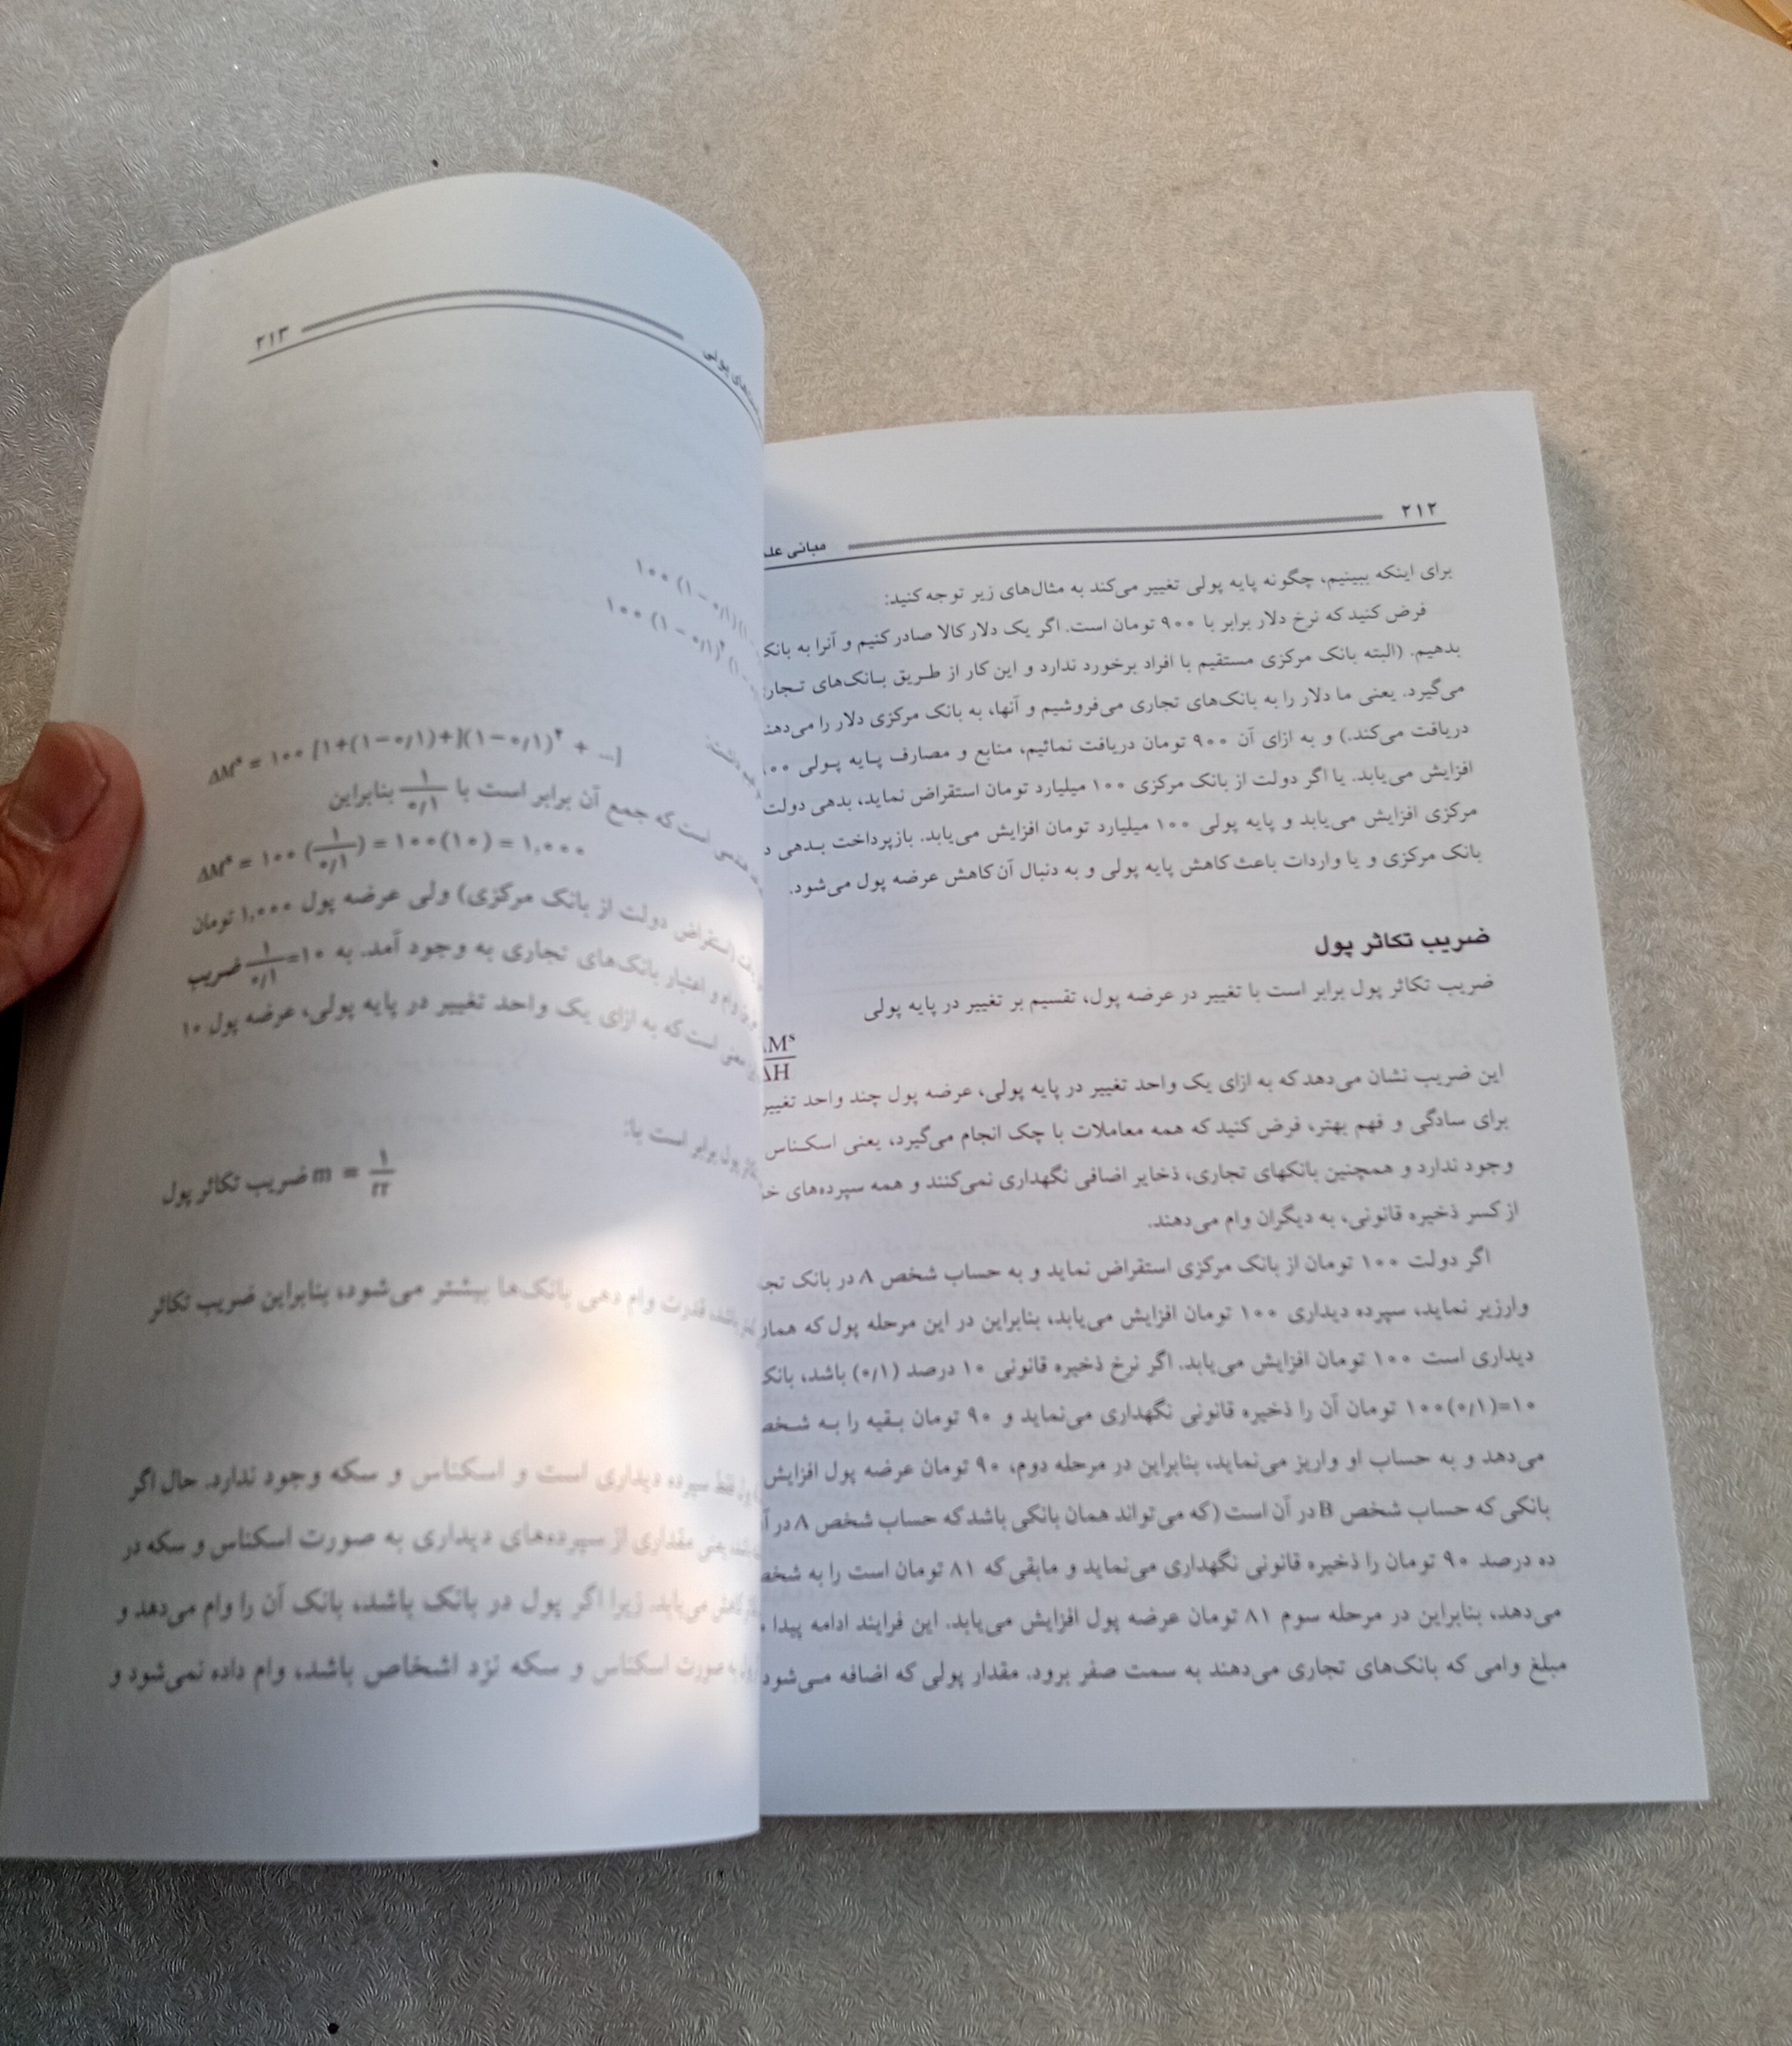 ۲۱۲
مبانی
برای اینکه ببینیم، چگونه پایه پولی تغییر می‌کند به مثال‌های زیر توجه کنید:
فرض کنید که نرخ دلار برابر با ۹۰۰ تومان است. اگر یک دلار کالا صادر کنیم و آنرا به بانک
بدهیم. (البته بانک مرکزی مستقیم با افراد برخورد ندارد و این کار از طریق بانک‌های
می‌گیرد. یعنی ما دلار را به بانک‌های تجاری می‌فروشیم و آنها، به بانک مرکزی دلار را
دریافت می‌کند.) و به ازای آن ۹۰۰ تومان دریافت نمائیم، منابع و مصارف پایه پولی
افزایش می‌یابد. یا اگر دولت از بانک مرکزی ۱۰۰ میلیارد تومان استقراض نماید، بدهی دولت
مرکزی افزایش می‌یابد و پایه پولی ۱۰۰ میلیارد تومان افزایش می‌یابد. بازپرداخت بدهی
بانک مرکزی و یا واردات باعث کاهش پایه پولی و به دنبال آن کاهش عرضه پول می‌شود.
ضریب تکاثر پول
ضریب تکاثر پول برابر است با تغییر در عرضه پول، تقسیم بر تغییر در پایه پولی
Mˢ
ΔH
این ضریب نشان می‌دهد که به ازای یک واحد تغییر در پایه پولی، عرضه پول چند واحد تغییر
برای سادگی و فهم بهتر، فرض کنید که همه معاملات با چک انجام می‌گیرد، یعنی اسکناس
وجود ندارد و همچنین بانکهای تجاری، ذخایر اضافی نگهداری نمی‌کنند و همه سپرده‌های
از کسر ذخیره قانونی، به دیگران وام می‌دهند.
اگر دولت ۱۰۰ تومان از بانک مرکزی استقراض نماید و به حساب شخص A در بانک
وارزیر نماید، سپرده دیداری ۱۰۰ تومان افزایش می‌یابد، بنابراین در این مرحله پول که
دیداری است ۱۰۰ تومان افزایش می‌یابد. اگر نرخ ذخیره قانونی ۱۰ درصد (۰/۱) باشد، بانک
۱۰۰(۰/۱)=۱۰ تومان آن را ذخیره قانونی نگهداری می‌نماید و ۹۰ تومان بقیه را به
می‌دهد و به حساب او واریز می‌نماید، بنابراین در مرحله دوم، ۹۰ تومان عرضه پول افزایش
بانکی که حساب شخص B در آن است (که می‌تواند همان بانکی باشد که حساب شخص A در
ده درصد ۹۰ تومان را ذخیره قانونی نگهداری می‌نماید و مابقی که ۸۱ تومان است را به
می‌دهد، بنابراین در مرحله سوم ۸۱ تومان عرضه پول افزایش می‌یابد. این فرایند ادامه پیدا
مبلغ وامی که بانک‌های تجاری می‌دهند به سمت صفر برود. مقدار پولی که اضافه می‌شود
۲۱۳
پولی
۱۰۰ (۱ − ۰/۱)
۱۰۰ (۱ − ۰/۱)²
ΔMˢ = ۱۰۰ [۱+(۱−۰/۱)+](۱−۰/۱)² + ...]
است که جمع آن برابر است با ۱/۰/۱ بنابراین
ΔMˢ = ۱۰۰ (۱/۰/۱) = ۱۰۰(۱۰) = ۱,۰۰۰
(استقراض دولت از بانک مرکزی) ولی عرضه پول ۱,۰۰۰ تومان
وام و اعتبار بانک‌های تجاری به وجود آمد. به ۱/۰/۱=۱۰ ضریب
معنی است که به ازای یک واحد تغییر در پایه پولی، عرضه پول ۱۰
پول برابر است با:
ضریب تکاثر پول m = ۱/rr
باشد، قدرت وام دهی بانک‌ها بیشتر می‌شود، بنابراین ضریب تکاثر
فقط سپرده دیداری است و اسکناس و سکه وجود ندارد. حال اگر
یعنی مقداری از سپرده‌های دیداری به صورت اسکناس و سکه در
کاهش می‌یابد. زیرا اگر پول در بانک باشد، بانک آن را وام می‌دهد و
به صورت اسکناس و سکه نزد اشخاص باشد، وام داده نمی‌شود و